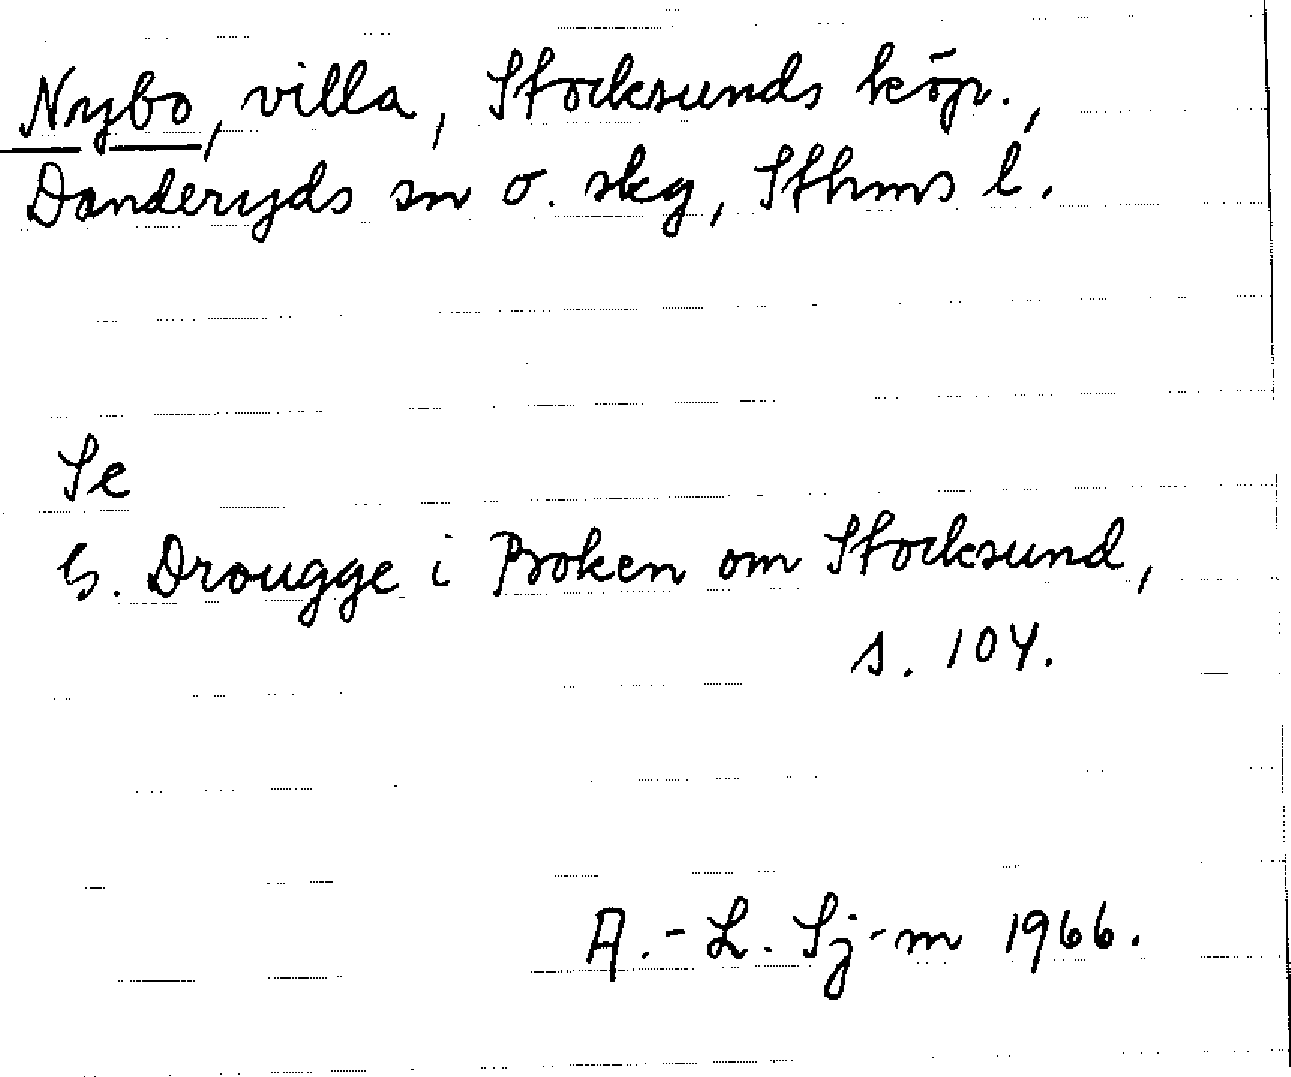 Nybo, villa, Stocksunds köp.,
Danderyds sn o. skg, Sthms l.
Se
G. Drougge i Boken om Stocksund,
s. 104.
A.-L. Sj-m 1966.